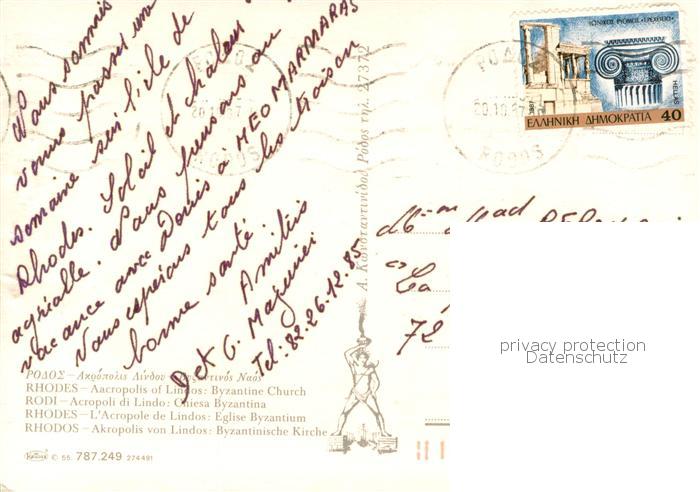 Nous sommes
venus passer une
semaine sur l'île de
Rhodes. Soleil et chaleur
agréable. Nous pensons au
vacance avec Denis à NEO MARMARAS
Vous espérons tous les trois en
bonne santé
Amitiés
D et G.
Tel: 82.26.12.85
ΡΟΔΟΣ
RODOS
ΡΟΔΟΣ
20.10.87
RODOS
ΙΩΝΙΚΟΣ ΡΥΘΜΟΣ «ΕΡΕΧΘΕΙΟ»
HELLAS
1987
ΕΛΛΗΝΙΚΗ ΔΗΜΟΚΡΑΤΙΑ 40
Α. Κωνσταντινίδου Ρόδος τηλ. 27372
72
privacy protection
Datenschutz
ΡΟΔΟΣ – Ακρόπολις Λίνδου Βυζαντινός Ναός
RHODES – Aacropolis of Lindos: Byzantine Church
RODI – Acropoli di Lindo: Chiesa Byzantina
RHODES – L'Acropole de Lindos: Eglise Byzantium
RHODOS – Akropolis von Lindos: Byzantinische Kirche
© 55. 787.249 274491